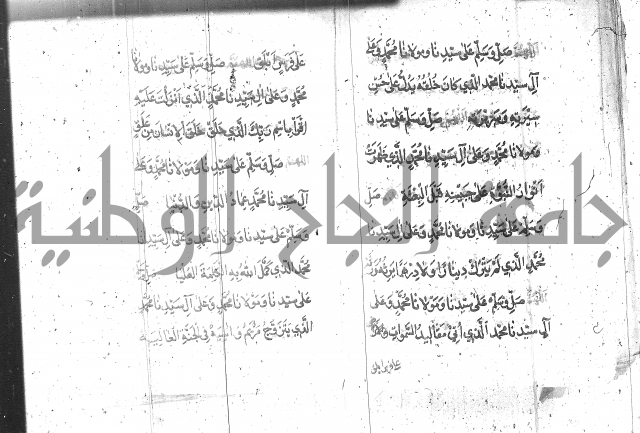 اللهم صل وسلم على سيدنا ومولانا محمد وعلى
آل سيدنا محمد الذي كان خلقه يدل على حسن
سيرته اللهم صل وسلم على سيدنا
ومولانا محمد وعلى آل سيدنا محمد الذي ظهرت
انوار النبوة على جبينه قبل البعثة صل
وسلم على سيدنا ومولانا محمد وعلى آل سيدنا
محمد الذي لم يترك دينارا ولا درهما
اللهم صل وسلم على سيدنا ومولانا محمد وعلى
آل سيدنا محمد الذي أوتي مقاليد السموات
على
اللهم صل وسلم على سيدنا ومولانا
محمد وعلى آل سيدنا محمد الذي انزلت عليه
اقرأ باسم ربك الذي خلق خلق الإنسان من علق
اللهم صل وسلم على سيدنا ومولانا محمد وعلى
آل سيدنا محمد عماد الدين صل
وسلم على سيدنا ومولانا محمد وعلى آل سيدنا
محمد الذي كمل الله به الكلمة العليا
على سيدنا ومولانا محمد وعلى آل سيدنا محمد
الذي يتزوج مريم وآسية في الجنة العالية
جامعة النجاح الوطنية